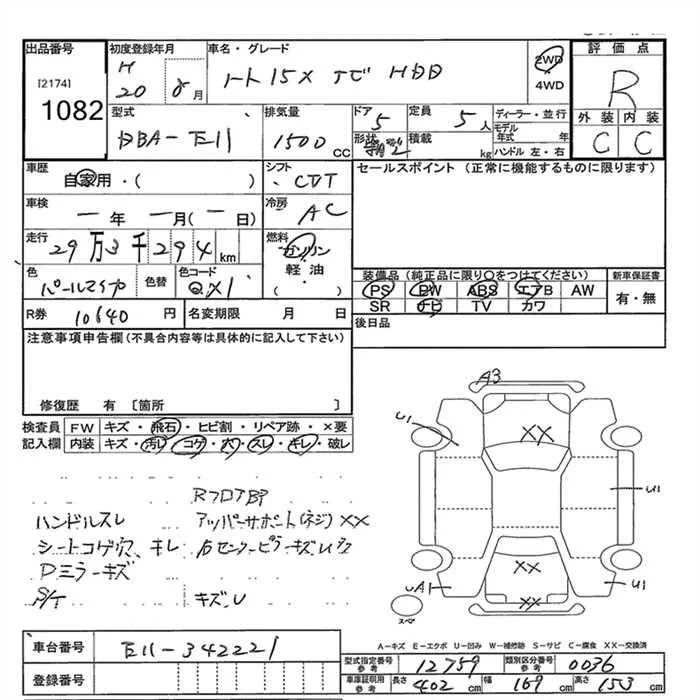 出品番号
[2174]
1082
初度登録年月
H 20 年 8 月
車名・グレード
ノート 15X ナビ HDD
2WD
4WD
評価点
R
外装 内装
C C
型式
DBA-E11
排気量
1500 CC
ドア
5
形状
定員
5人
積載
kg
ディーラー・並行
モデル年式 年
ハンドル 左・右
車歴
自家用・( )
シフト
CVT
セールスポイント (正常に機能するものに限ります)
車検
ー年 ー月(ー日)
冷房
AC
走行
29万3千294km
燃料
ガソリン
軽油
( )
色
パールマイカ
色替
色コード
QX1
装備品(純正品に限り○をつけてください)
PS PW ABS エアB AW
SR ナビ TV カワ
新車保証書
有・無
R券 10640 円
名変期限 月 日
後日品
注意事項申告欄(不具合内容等は具体的に記入して下さい)
修復歴 有 [箇所 ]
検査員記入欄
FW キズ・飛石・ヒビ割・リペア跡・×要
内装 キズ・汚れ・コゲ・穴・スレ・キレ・破レ
Rフロア部
ハンドルスレ
アッパーサポート(ネジ)XX
シートコゲ穴、キレ
右センターピラーキズ
Dミラーキズ
キズ、U
A3
U1
XX
U1
XX
UA1
XX
U1
スペア
A-キズ E-エクボ U-凹み W-補修跡 S-サビ C-腐食 XX-交換済
車台番号
E11-342221
登録番号
型式指定番号 参考 12759
類別区分番号 参考 0036
車庫証明用 参考 長さ 402 cm 幅 169 cm 高さ 153 cm